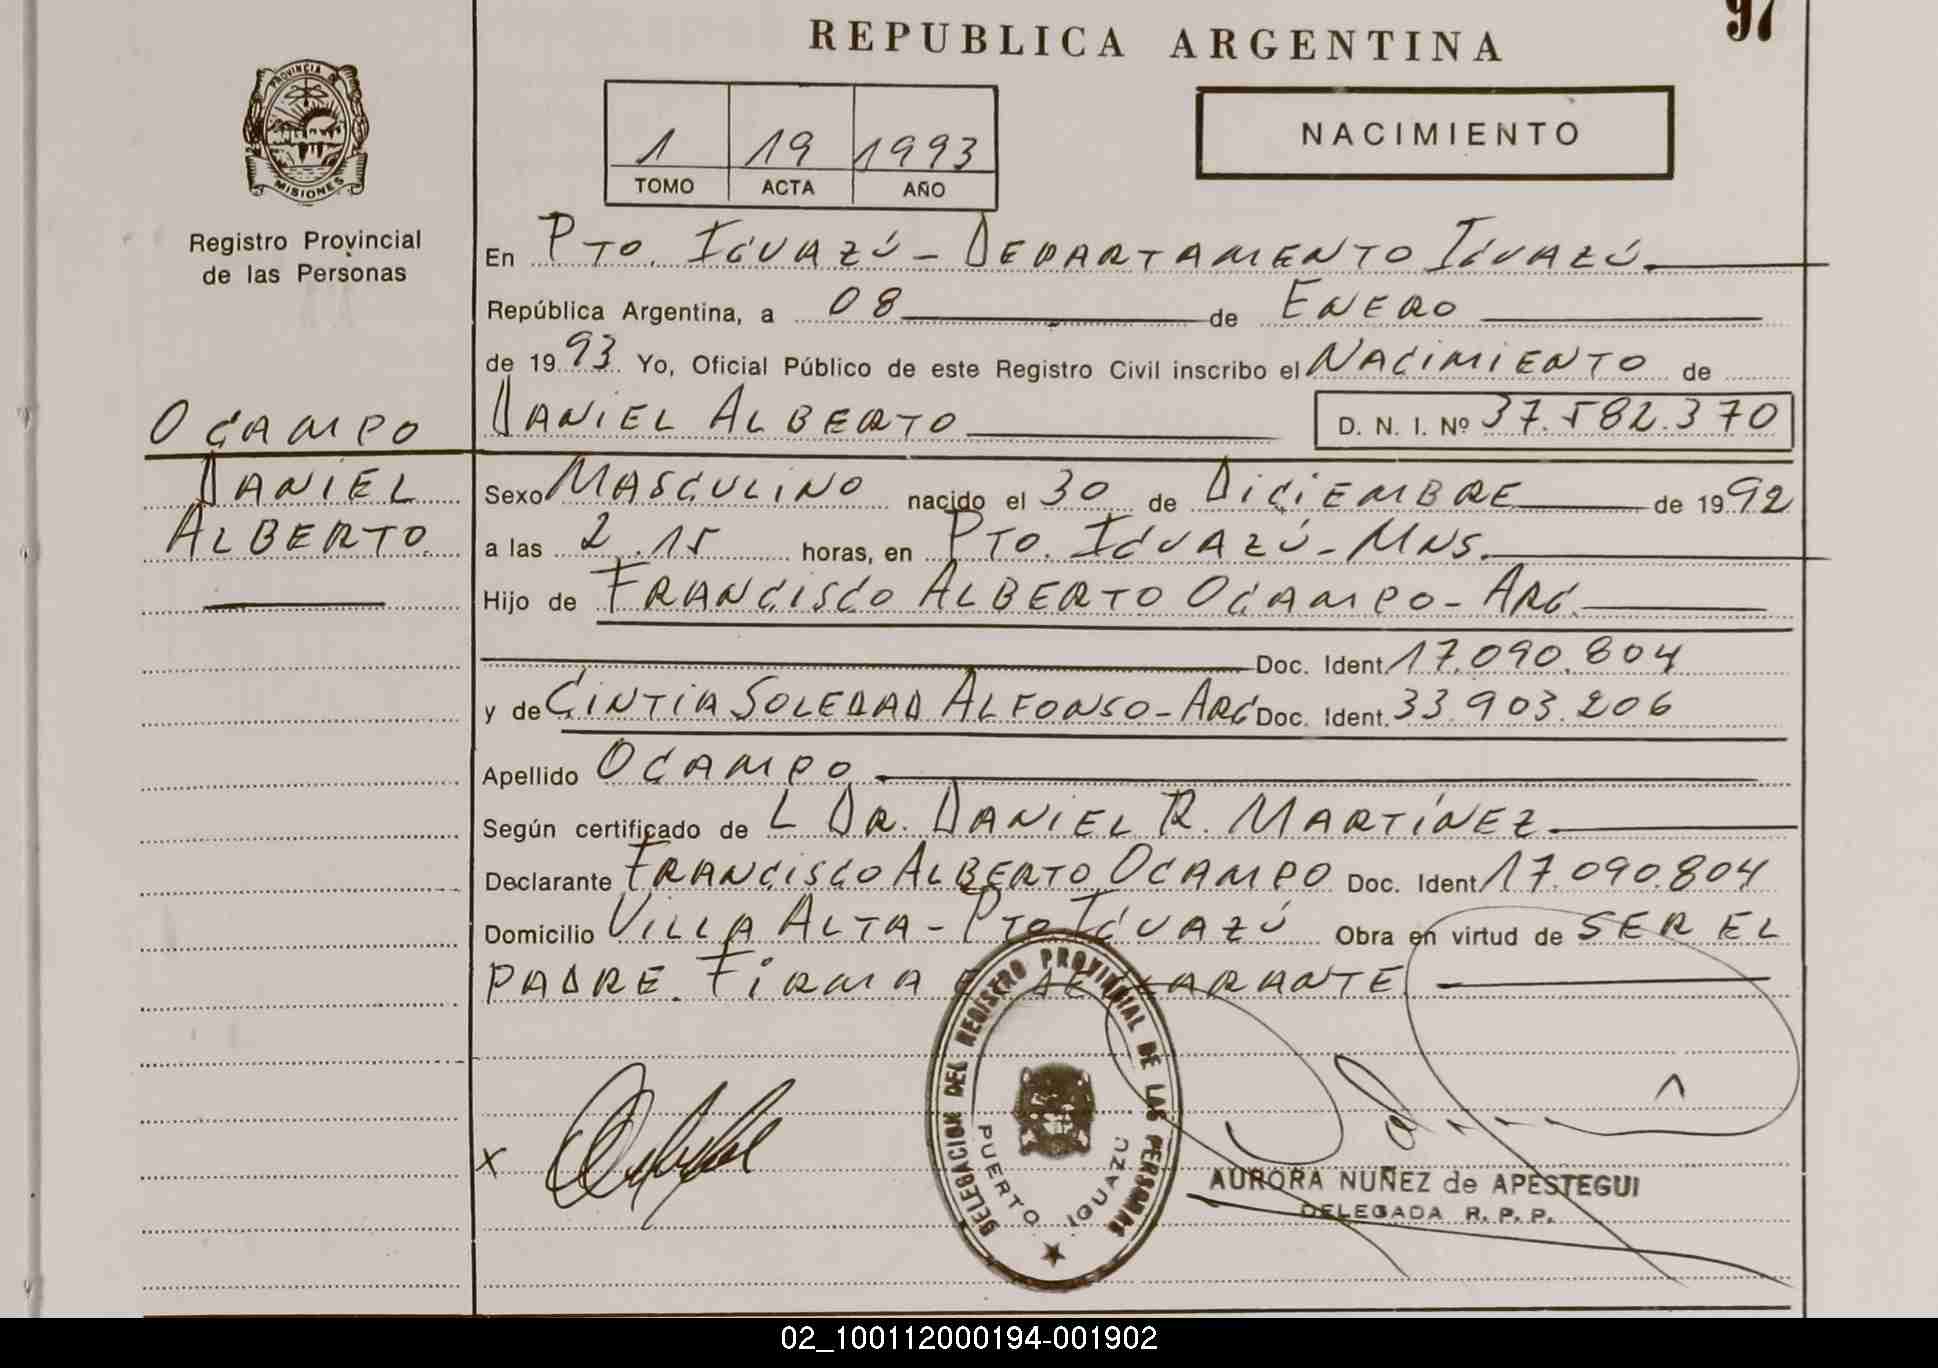 REPUBLICA ARGENTINA
97
PROVINCIA DE
MISIONES
Registro Provincial
de las Personas
1 19 1993
TOMO ACTA AÑO
NACIMIENTO
En PTO. IGUAZÚ - DEPARTAMENTO IGUAZÚ
República Argentina, a 08 de ENERO
de 1993 Yo, Oficial Público de este Registro Civil inscribo el NACIMIENTO de
DANIEL ALBERTO D. N. I. Nº 37.582.370
OCAMPO
DANIEL
ALBERTO
Sexo MASCULINO nacido el 30 de DICIEMBRE de 1992
a las 2.15 horas, en PTO. IGUAZÚ - MNS.
Hijo de FRANCISCO ALBERTO OCAMPO - ARG.
Doc. Ident. 17.090.804
y de CINTIA SOLEDAD ALFONSO - ARG Doc. Ident. 33.903.206
Apellido OCAMPO
Según certificado de L DR. DANIEL R. MARTÍNEZ
Declarante FRANCISCO ALBERTO OCAMPO Doc. Ident 17.090.804
Domicilio VILLA ALTA - PTO IGUAZÚ Obra en virtud de SER EL
PADRE. FIRMA E DECLARANTE
DELEGACION DEL REGISTRO PROVINCIAL DE LAS PERSONAS
PUERTO IGUAZU
X
AURORA NUÑEZ de APESTEGUI
DELEGADA R. P. P.
02_100112000194-001902